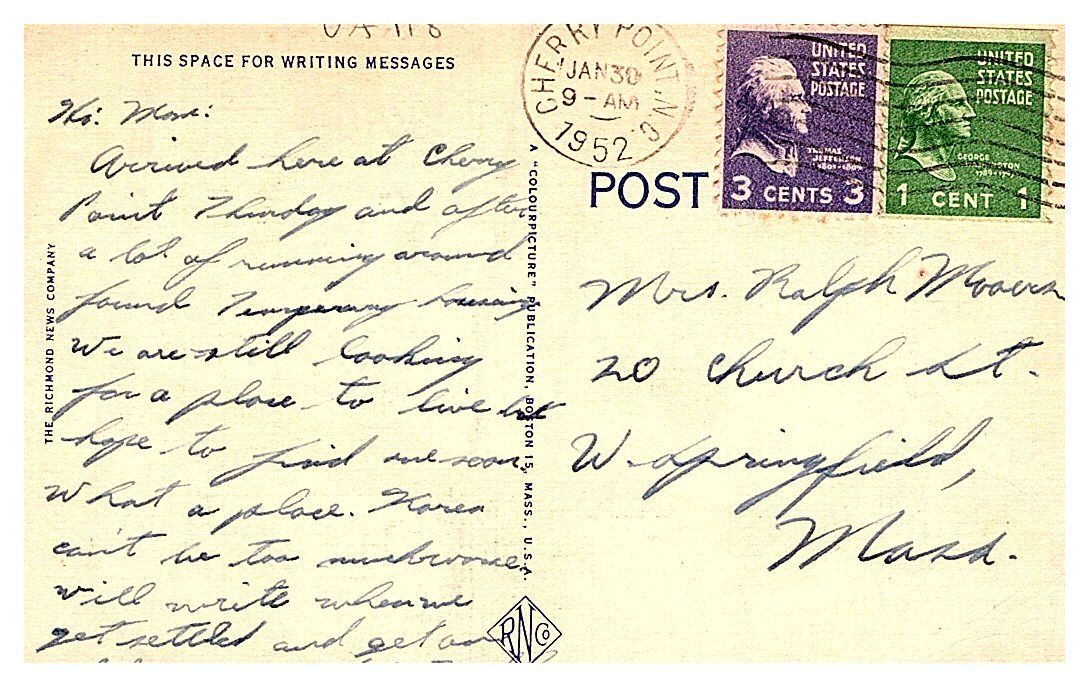 VA 118
THIS SPACE FOR WRITING MESSAGES
Hi: Mom:
Arrived here at Cherry
Point Thursday and after
a lot of running around
found Temporary housing
We are still looking
for a place to live but
hope to find one soon.
What a place. Korea
can't be too much worse.
Will write when we
get settled and get our
THE RICHMOND NEWS COMPANY
A "COLOURPICTURE" PUBLICATION, BOSTON 15, MASS., U.S.A.
RNCo
CHERRY POINT, N.C.
JAN 30
9-AM
1952
UNITED
STATES
POSTAGE
THOMAS
JEFFERSON
3 CENTS 3
UNITED
STATES
POSTAGE
GEORGE
WASHINGTON
1 CENT 1
POST
Mrs. Ralph Mooers
20 Church St.
W. Springfield,
Mass.